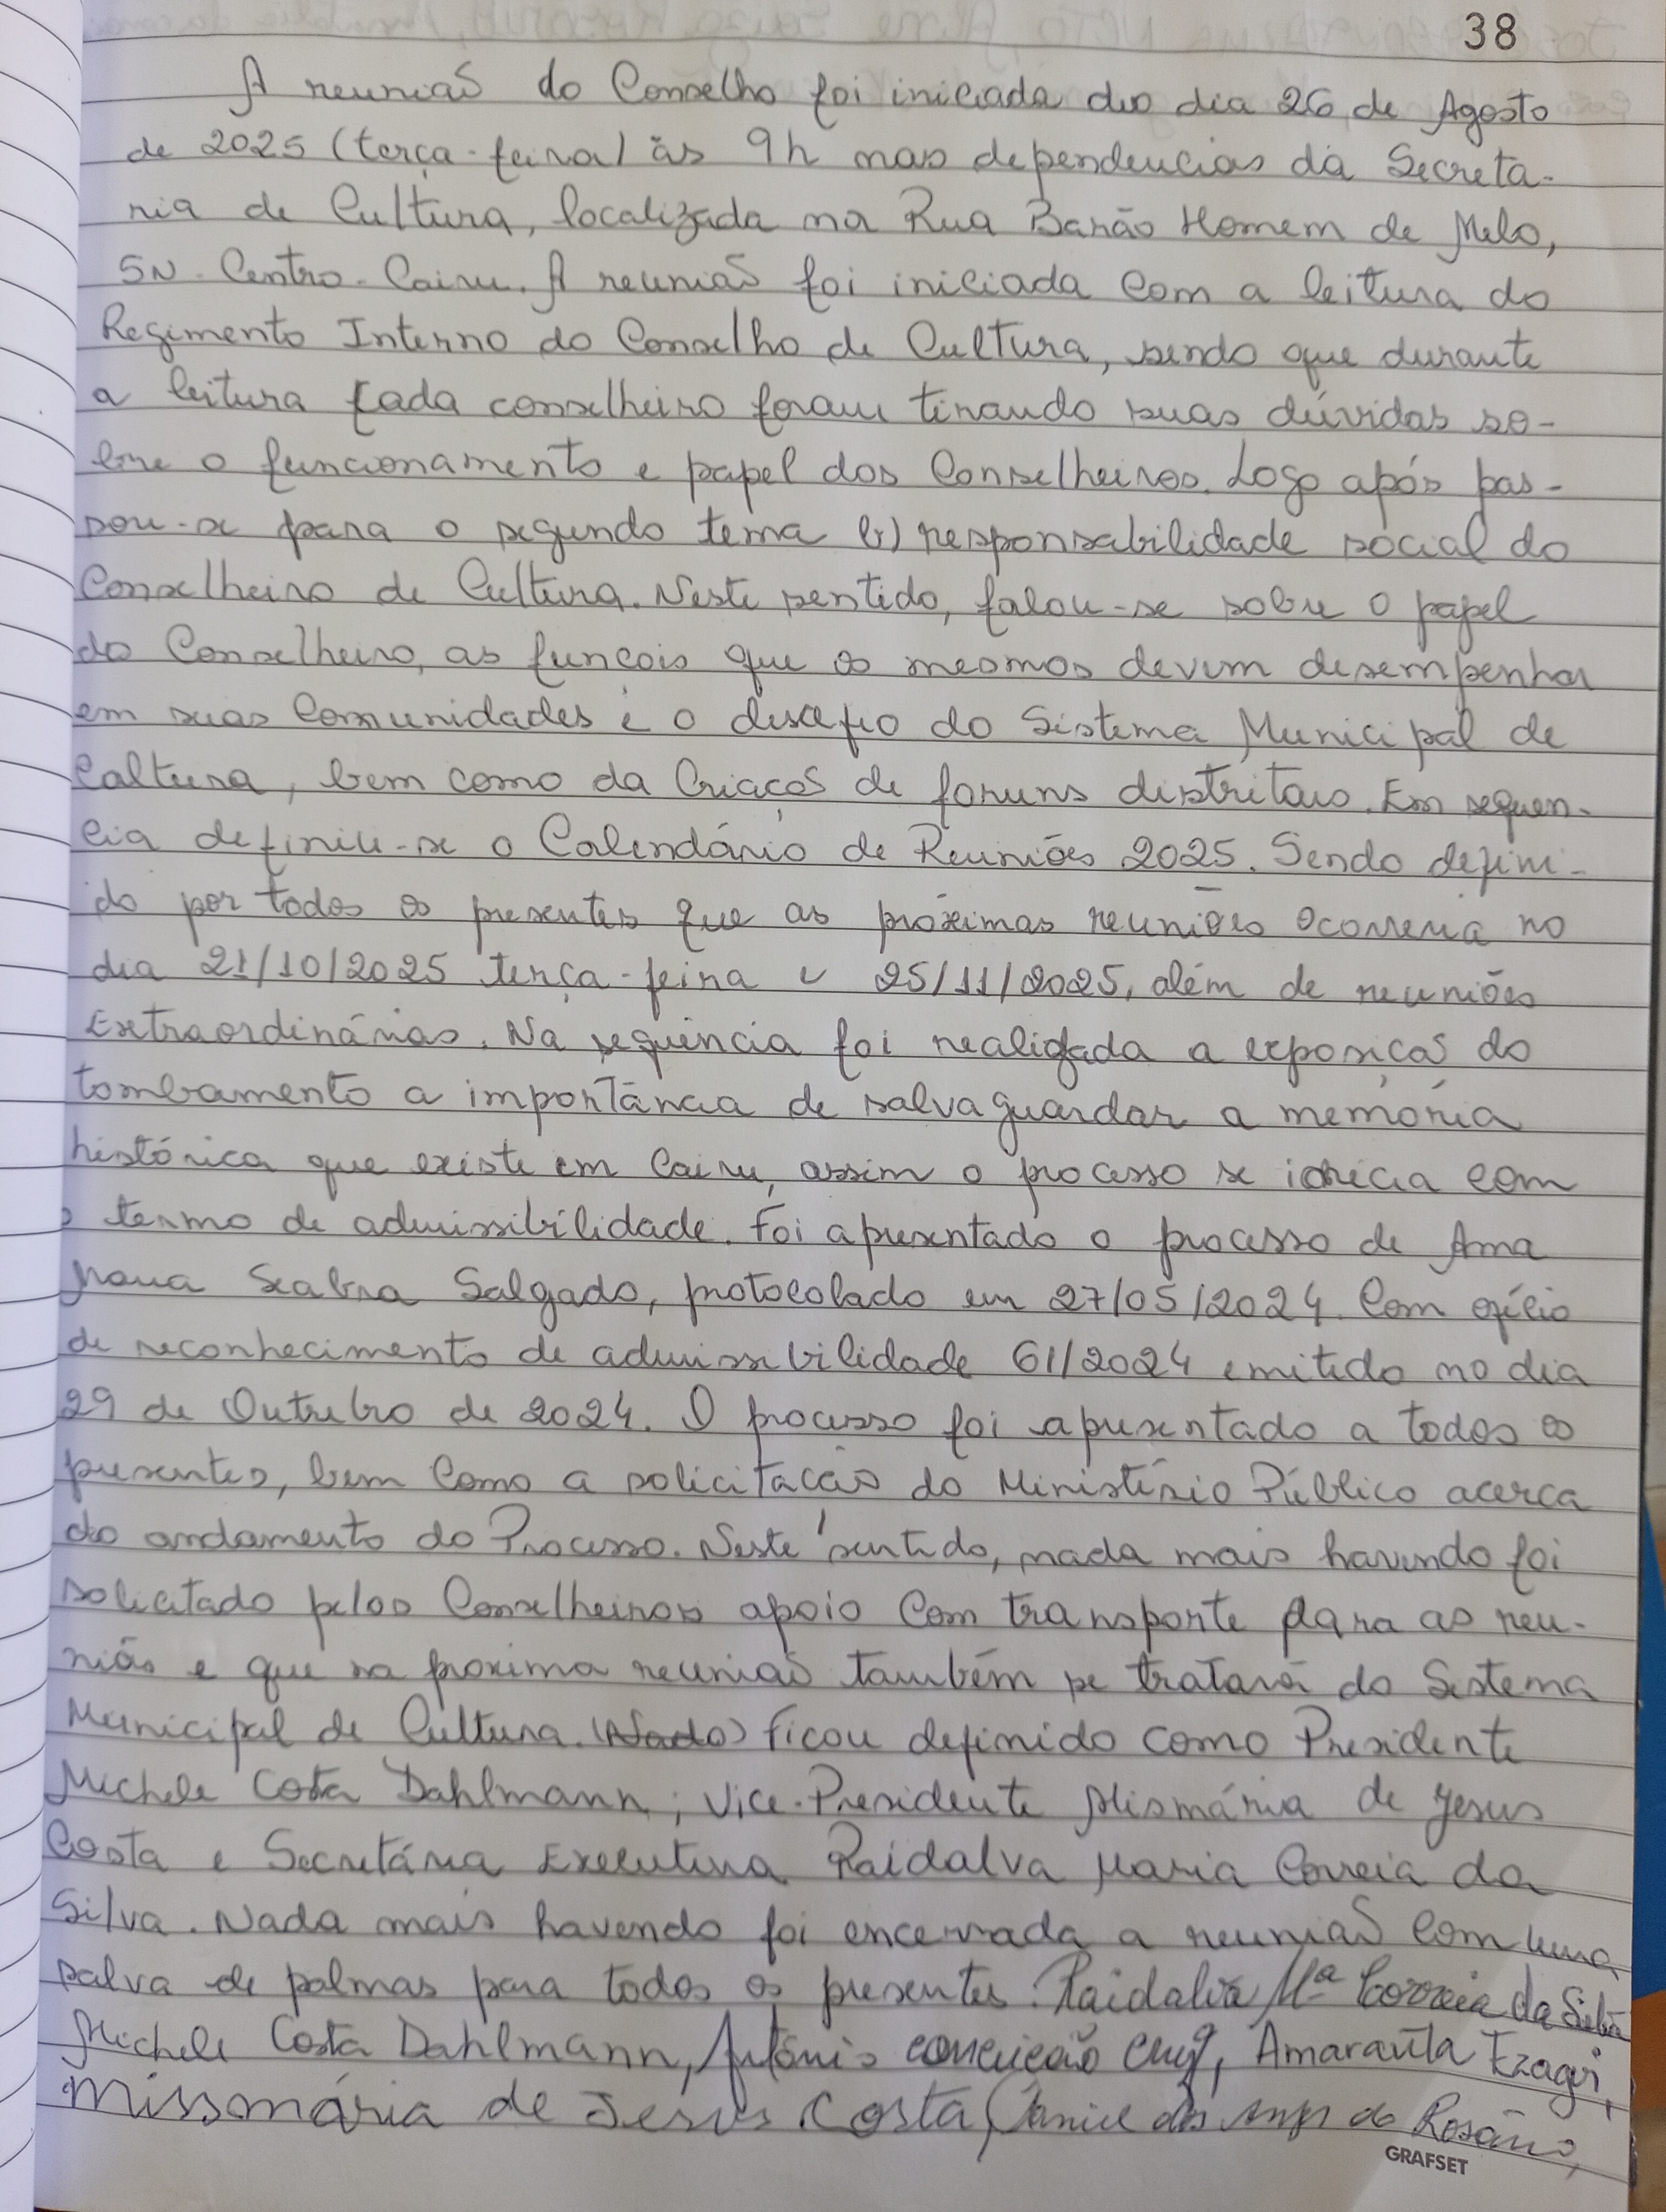 38
A reunião do Conselho foi iniciada do dia 26 de Agosto
de 2025 (terça-feira) às 9h nas dependencias da Secreta-
ria de Cultura, localizada na Rua Barão Homem de Melo,
SN - Centro - Cairu. A reunião foi iniciada com a leitura do
Regimento Interno do Conselho de Cultura, sendo que durante
a leitura cada conselheiro foram tirando suas dúvidas so-
bre o funcionamento e papel dos Conselheiros. Logo após pas-
sou-se para o segundo tema b) responsabilidade social do
Conselheiro de Cultura. Neste sentido, falou-se sobre o papel
do Conselheiro, as funçois que os mesmos devem desempenhar
em suas Comunidades e o desafio do Sistema Municipal de
Cultura, bem como da Criação de foruns distritais. Em sequen-
cia definiu-se o Calendário de Reuniões 2025. Sendo defini-
do por todos os presentes que as próximas reuniões ocorreria no
dia 21/10/2025 terça-feira e 25/11/2025, além de reuniões
Extraordinárias. Na sequência foi realizada a exposição do
tombamento a importância de salvaguardar a memória
histórica que existe em Cairu, assim o processo se inicia com
o termo de admissibilidade. Foi apresentado o processo de Ana
Maria Seabra Salgado, protocolado em 27/05/2024. Com ofício
de reconhecimento de admissibilidade 61/2024 emitido no dia
29 de Outubro de 2024. O processo foi apresentado a todos os
presentes, bem como a solicitação do Ministério Público acerca
do andamento do Processo. Neste sentido, nada mais havendo foi
solicitado pelos Conselheiros apoio com transporte para as reu-
niões e que na proxima reunião também se tratará do Sistema
Municipal de Cultura. (Nado) Ficou definido como Presidente
Michele Costa Dahlmann; Vice-Presidente Mismária de Jesus
Costa e Secretária Executiva Raidalva Maria Correia da
Silva. Nada mais havendo foi encerrada a reunião com uma
salva de palmas para todos os presentes. Raidalva Mª Correia da Silva
Michele Costa Dahlmann, Antônio conceição, Amaraula Ezagui,
Missmária de Jesus Costa, do Rosário,
GRAFSET